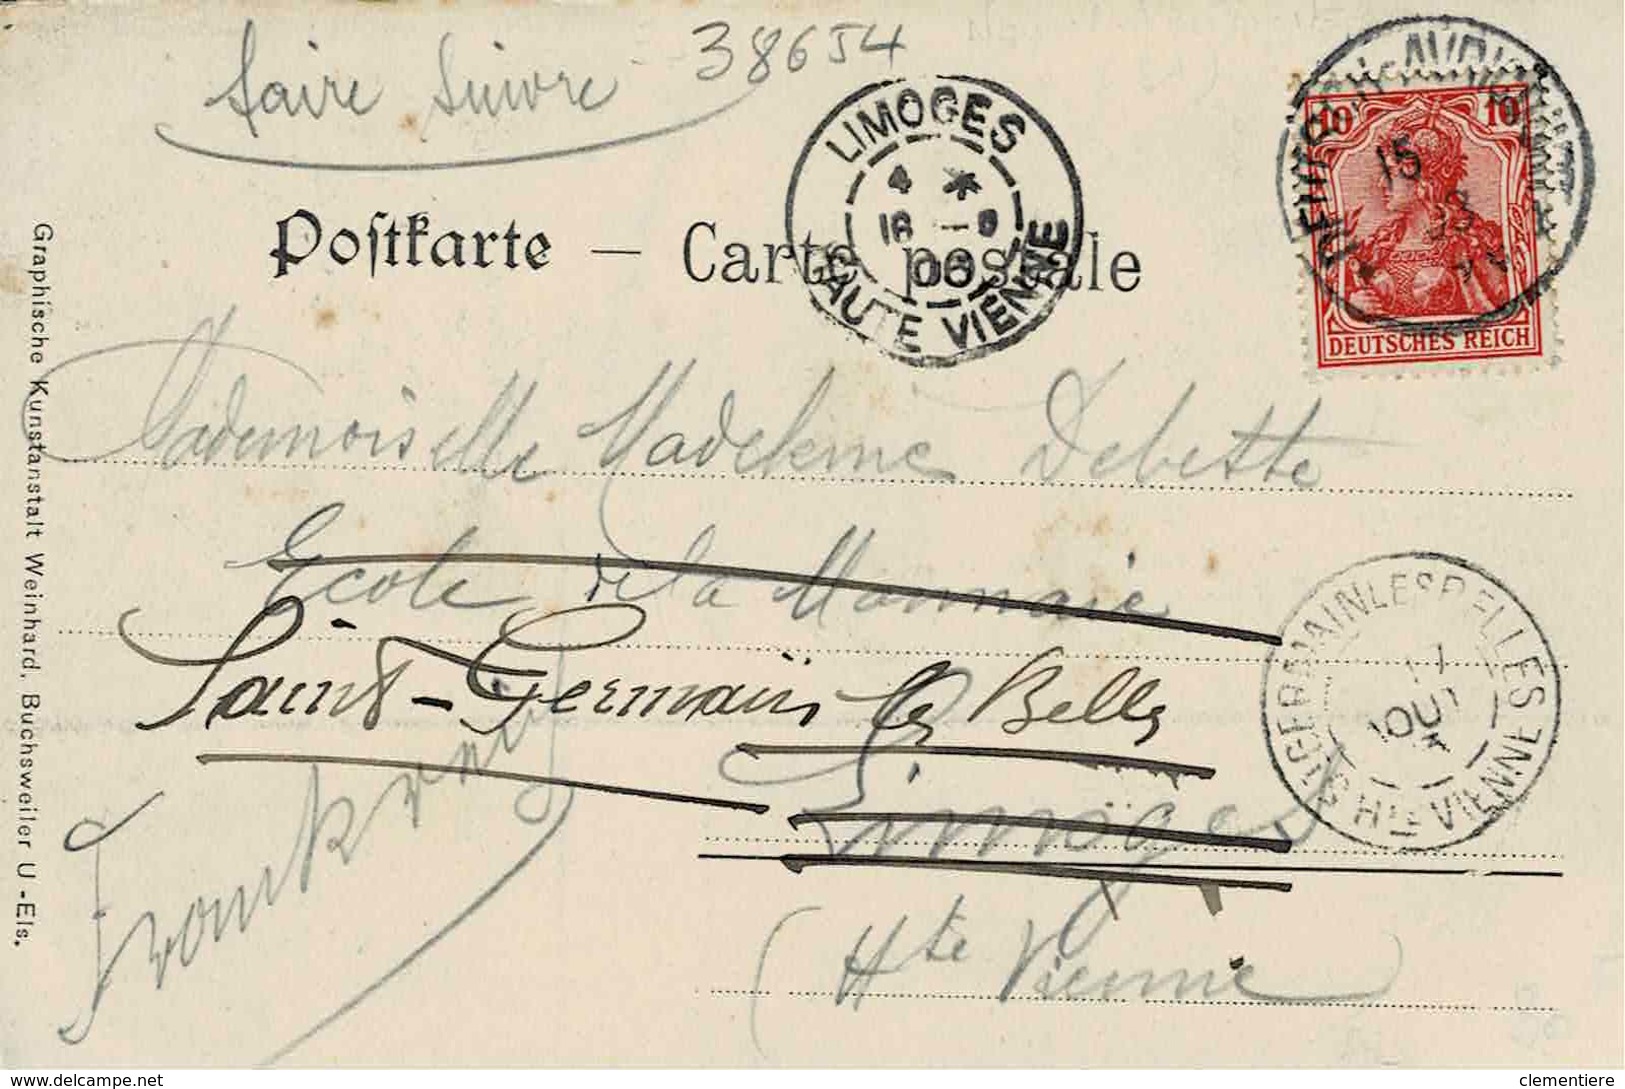 faire suivre
38654
LIMOGES
4 *
16 -8
06
HAUTE VIENNE
10 10
15
DEUTSCHES REICH
Postkarte — Carte postale
Mademoiselle Madeleine Debette
Ecole de la Monnaie
Saint-Germain les Belles
Limoges
(Hte Vienne
Frankreich
ST GERMAIN LES BELLES
17
AOUT
HTE VIENNE
Graphische Kunstanstalt Weinhard, Buchsweiler U.-Els.
clementiere